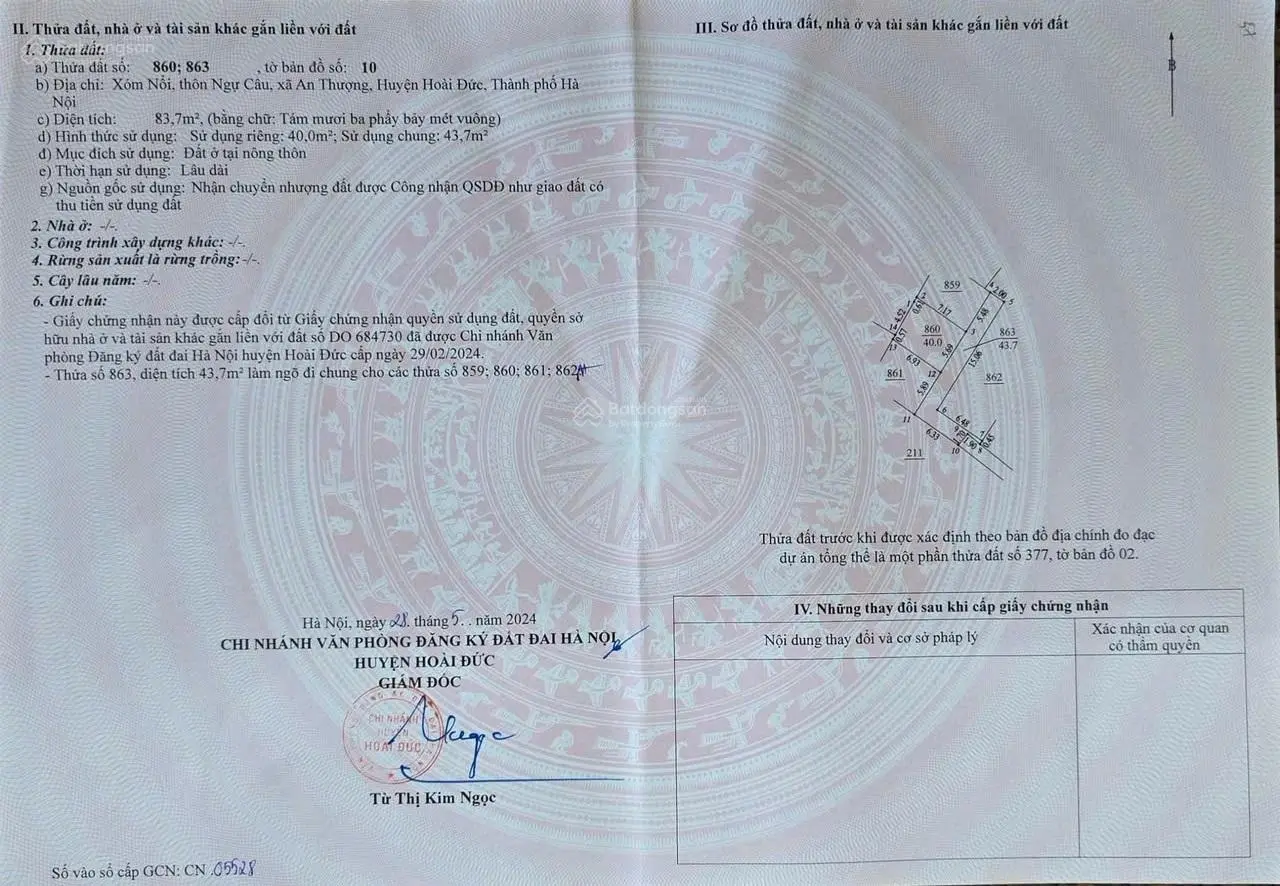 II. Thửa đất, nhà ở và tài sản khác gắn liền với đất
1. Thửa đất:
a) Thửa đất số: 860; 863 , tờ bản đồ số: 10
b) Địa chỉ: Xóm Nồi, thôn Ngự Câu, xã An Thượng, Huyện Hoài Đức, Thành phố Hà
Nội
c) Diện tích: 83,7m², (bằng chữ: Tám mươi ba phẩy bảy mét vuông)
d) Hình thức sử dụng: Sử dụng riêng: 40,0m²; Sử dụng chung: 43,7m²
đ) Mục đích sử dụng: Đất ở tại nông thôn
e) Thời hạn sử dụng: Lâu dài
g) Nguồn gốc sử dụng: Nhận chuyển nhượng đất được Công nhận QSDĐ như giao đất có
thu tiền sử dụng đất
2. Nhà ở: -/-.
3. Công trình xây dựng khác: -/-.
4. Rừng sản xuất là rừng trồng: -/-.
5. Cây lâu năm: -/-.
6. Ghi chú:
- Giấy chứng nhận này được cấp đổi từ Giấy chứng nhận quyền sử dụng đất, quyền sở
hữu nhà ở và tài sản khác gắn liền với đất số DO 684730 đã được Chi nhánh Văn
phòng Đăng ký đất đai Hà Nội huyện Hoài Đức cấp ngày 29/02/2024.
- Thửa số 863, diện tích 43,7m² làm ngõ đi chung cho các thửa số 859; 860; 861; 862
Hà Nội, ngày 28. tháng 5. . năm 2024
CHI NHÁNH VĂN PHÒNG ĐĂNG KÝ ĐẤT ĐAI HÀ NỘI
HUYỆN HOÀI ĐỨC
GIÁM ĐỐC
CHI NHÁNH
HUYỆN
HOÀI ĐỨC
Từ Thị Kim Ngọc
Số vào sổ cấp GCN: CN .05528
III. Sơ đồ thửa đất, nhà ở và tài sản khác gắn liền với đất
B
859
4 2.00 5
1 0.61 2
7.17
5.48
4.52
3
14
0.57
13
860
40.0
863
43.7
5.69
15.06
6.93
12
861
862
5.89
6
11
6.48
6.33
9
1.90
7
8
0.45
10
211
Batdongsan
Thửa đất trước khi được xác định theo bản đồ địa chính đo đạc
dự án tổng thể là một phần thửa đất số 377, tờ bản đồ 02.
IV. Những thay đổi sau khi cấp giấy chứng nhận
Nội dung thay đổi và cơ sở pháp lý
Xác nhận của cơ quan
có thẩm quyền